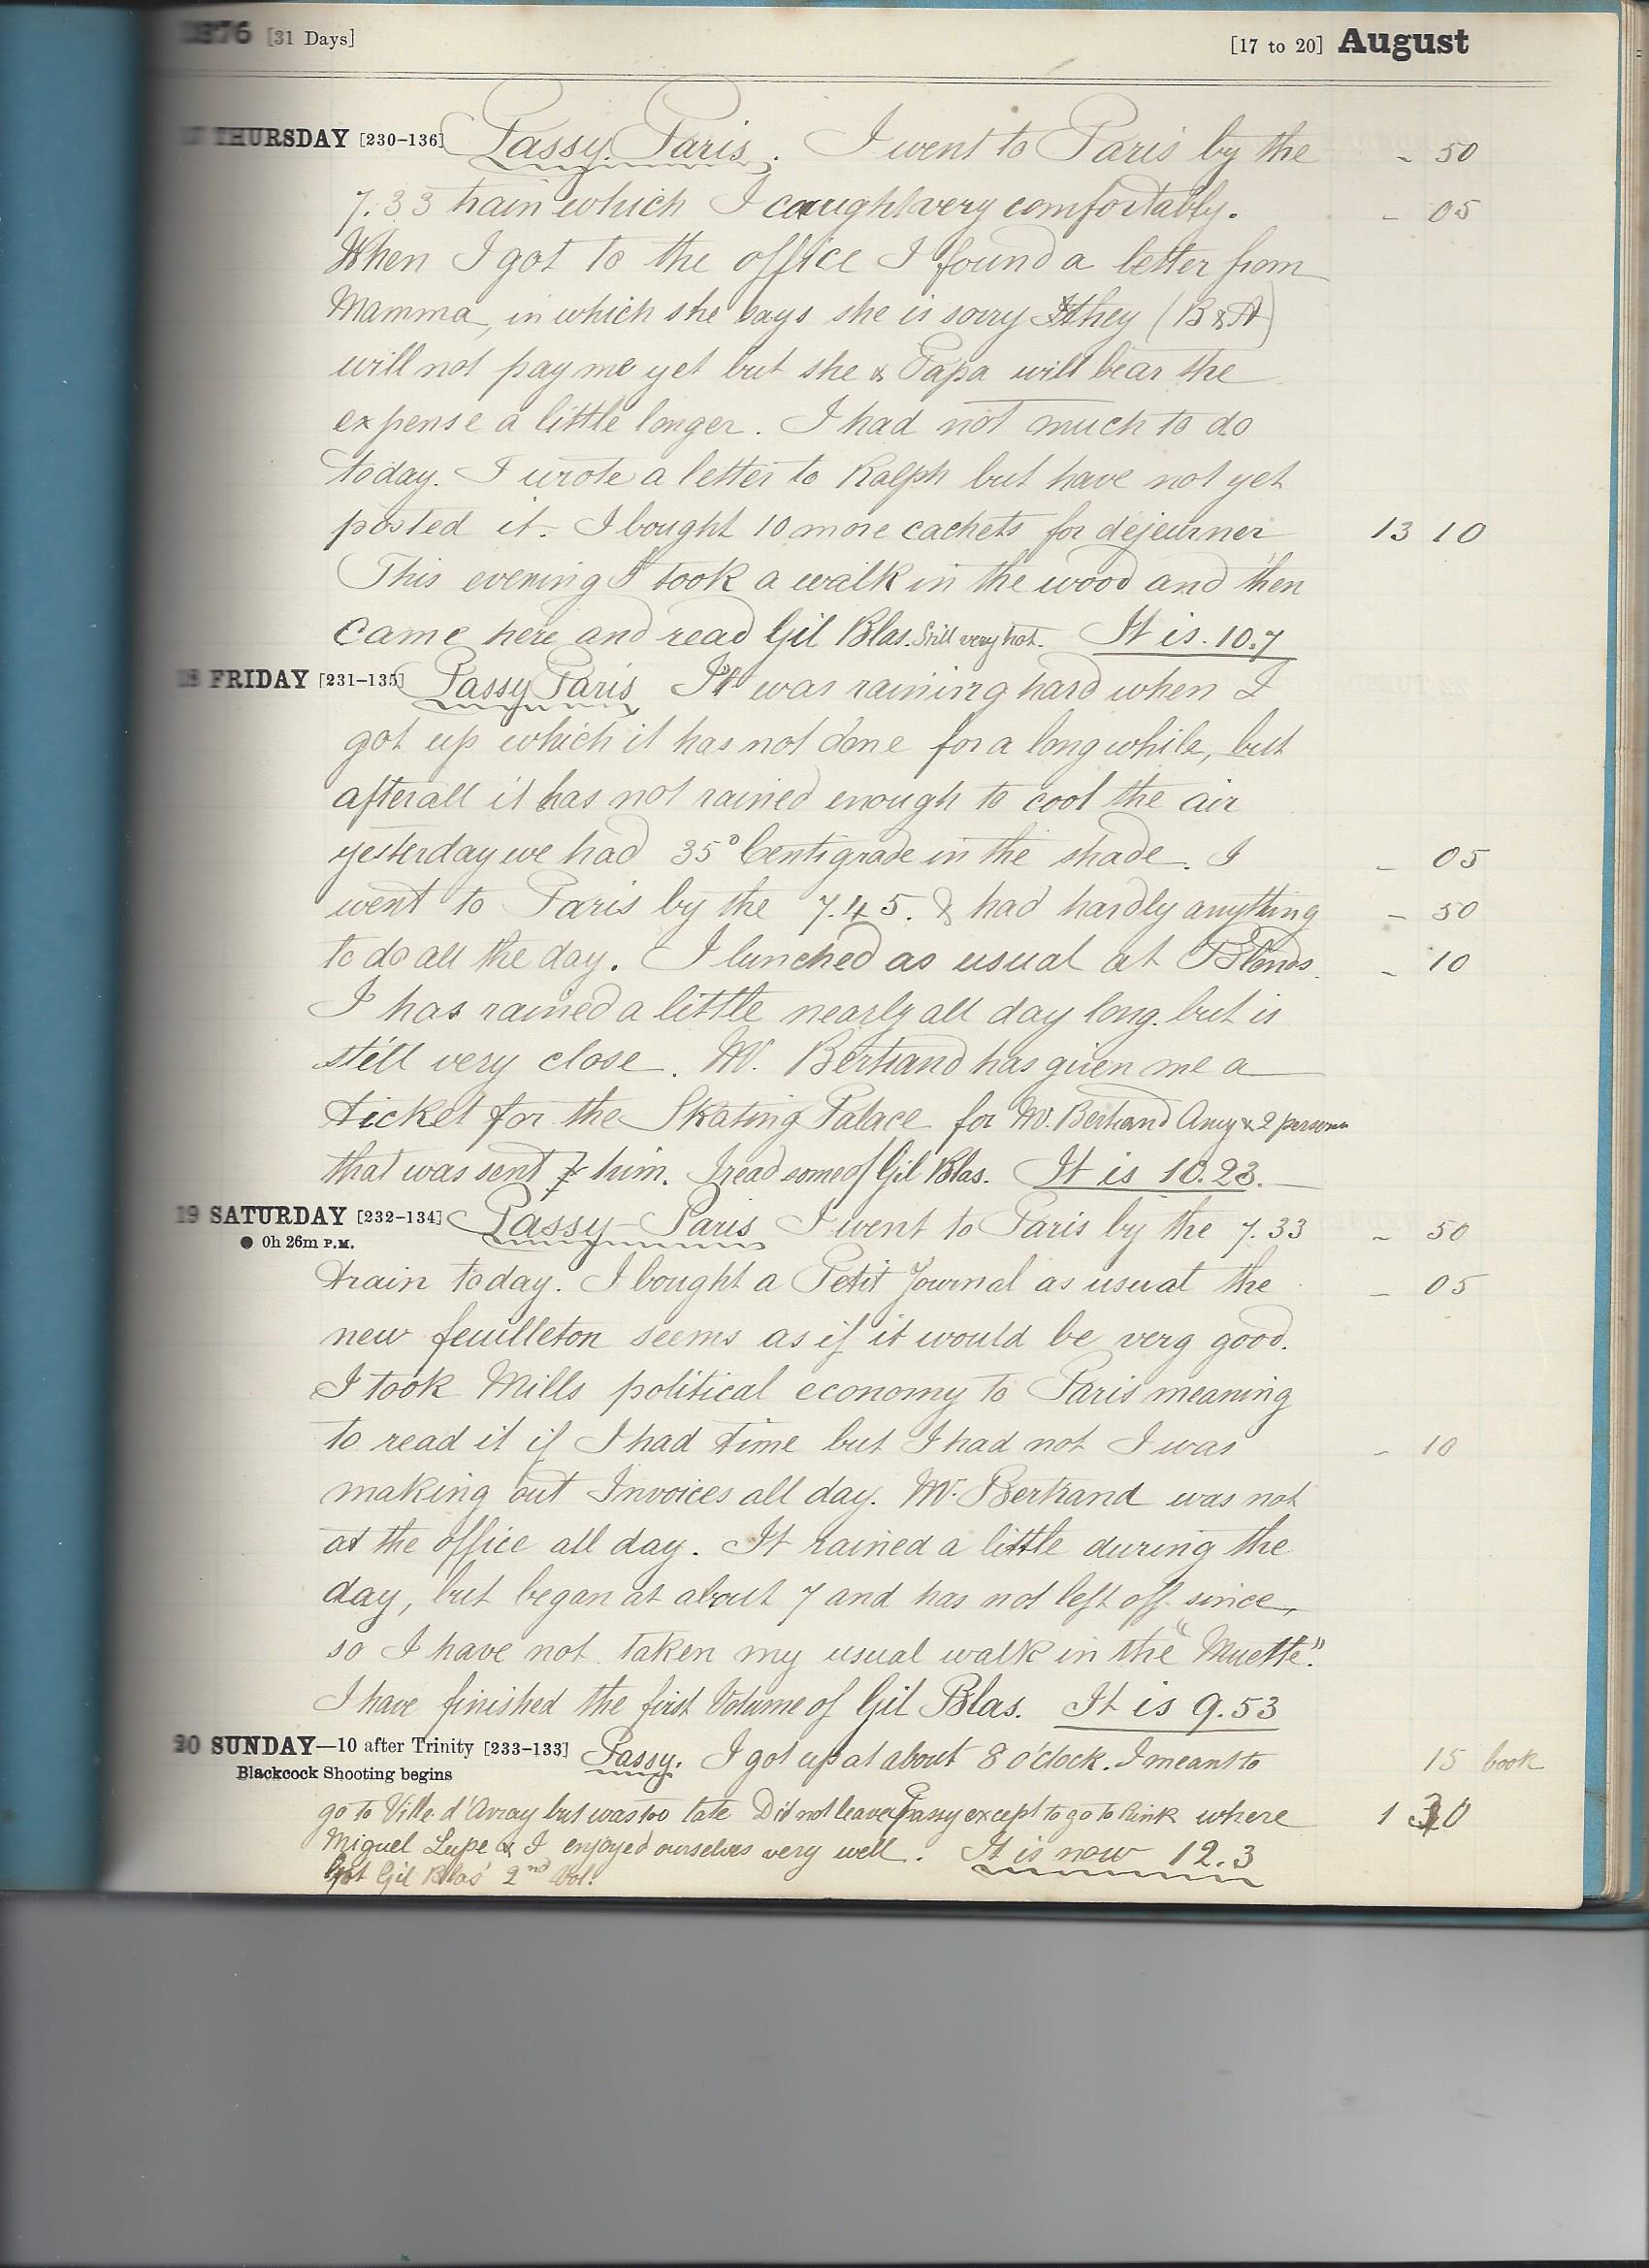 1876 [31 Days] [17 to 20] August
17 THURSDAY [230-136] Passy. Paris. I went to Paris by the - 50
7.33 train which I caught very comfortably. - 05
When I got to the office I found a letter from
Mamma, in which she says she is sorry they (B & A)
will not pay me yet but she & Papa will bear the
expense a little longer. I had not much to do
today. I wrote a letter to Ralph but have not yet
posted it. I bought 10 more cachets for dejeurner 13 10
This evening I took a walk in the wood and then
came here and read Gil Blas. Still very hot. It is. 10.7
18 FRIDAY [231-135] Passy Paris It was raining hard when I
got up which it has not done for a long while, but
afterall it has not rained enough to cool the air
yesterday we had 35° Centigrade in the shade. I - 05
went to Paris by the 7.45. & had hardly anything - 50
to do all the day. I lunched as usual at Blonds. - 10
I has rained a little nearly all day long. but is
still very close. Mr. Bertrand has given me a
ticket for the Skating Palace for Mr. Bertrand Amy & 2 persons
that was sent him. I read some of Gil Blas. It is 10.23.
19 SATURDAY [232-134] Passy-Paris I went to Paris by the 7.33 - 50
● 0h 26m P.M.
train today. I bought a Petit Journal as usual the - 05
new feuilleton seems as if it would be very good.
I took Mills political economy to Paris meaning
to read it if I had time but I had not I was - 10
making out Invoices all day. Mr. Bertrand was not
at the office all day. It rained a little during the
day, but began at about 7 and has not left off since,
so I have not taken my usual walk in the "Muette."
I have finished the first Volume of Gil Blas. It is 9.53
20 SUNDAY—10 after Trinity [233-133] Passy. I got up at about 8 o'clock. I meant to 15 book
Blackcock Shooting begins
go to Ville d'Avray but was too late Did not leave Passy except to go to Rink where 1
Miguel Lupe & I enjoyed ourselves very well. It is now 12.3
Got Gil Blas' 2nd Vol.